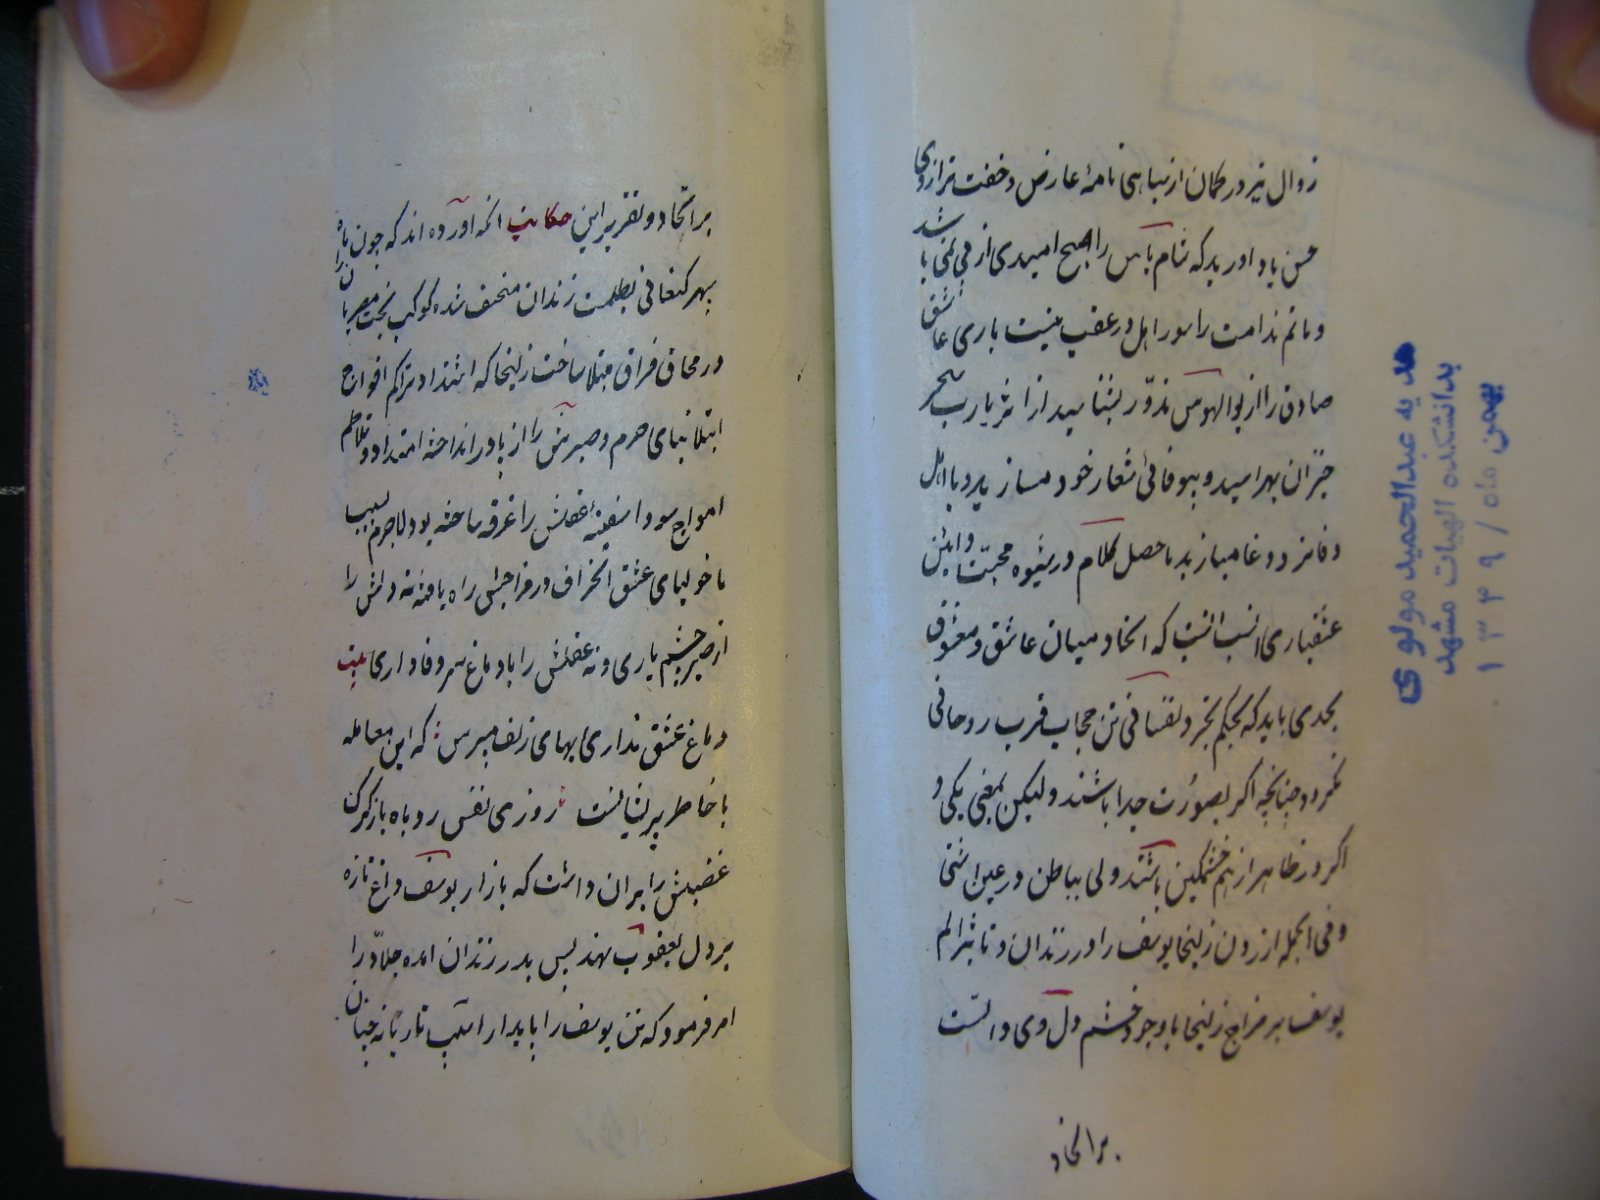 زوال نیز در کمان از سیاهی نامهٔ عارض و خفت ترازوی
حسن یاد اورید که شام یاس را صبح امیدی از پی نمی باشد
و ماتم ندامت را سور اهل در عقب نیست باری عاشق
صادق را از بوالهوس مزور بشناسید از اثر یارب سحر
خیزان بهراسید و بیوفائی شعار خود مسازید و با اهل
وفا نرد دغا مبازید حاصل کلام در شیوه محبت و ائین
عشقبازی انسب انست که اتحاد میان عاشق و معشوق
بحدی باید که بحکم تجرد نفسانی تن حجاب قرب روحانی
نکردد چنانچه اکر بصورت جدا باشند ولیکن بمعنی یکی و
اکر در ظاهر از هم خشمکین باشند ولی بباطن در عین اشتی
و فی الجمله ازردن زلیخا یوسف را در زندان و تاثیر الم
یوسف بر مزاج زلیخا با وجود خشم دل وی دالست
بر اتحاد
بر اتحاد و تقریر این حکایت انکه آورده اند که چون ماه
سپهر کنعانی بظلمت زندان منخسف شده کوکب بخت مصریان را
در محاق فراق مبتلا ساخت زلیخا که اشتداد تراکم افواج
ابتلا بنای حزم و صبرش را از پا در انداخته امتداد و تلاطم
امواج سودا سفینهٔ عقلش را غرقه ساخته بود لاجرم بسبب
ماخولیای عشق انحراف در مزاجش راه یافته نه دلش را
از صبر چشم یاری و نه عقلش را با دماغ سر وفاداری بیت
دماغ عشق نداری بهای زلف مپرس که این معامله
با خاطر پریشانست روزی نفس روباه باز کرک
غضبش را بران داشت که بازار یوسف داغ تازه
بر دل یعقوب نهد پس بدر زندان امده جلاد را
امر فرمود که تن یوسف را پایدار اسیب تازیانه چنان
هدیه عبدالحمید مولوی
بدانشکده الهیات مشهد
بهمن ماه / ۱۳۴۹